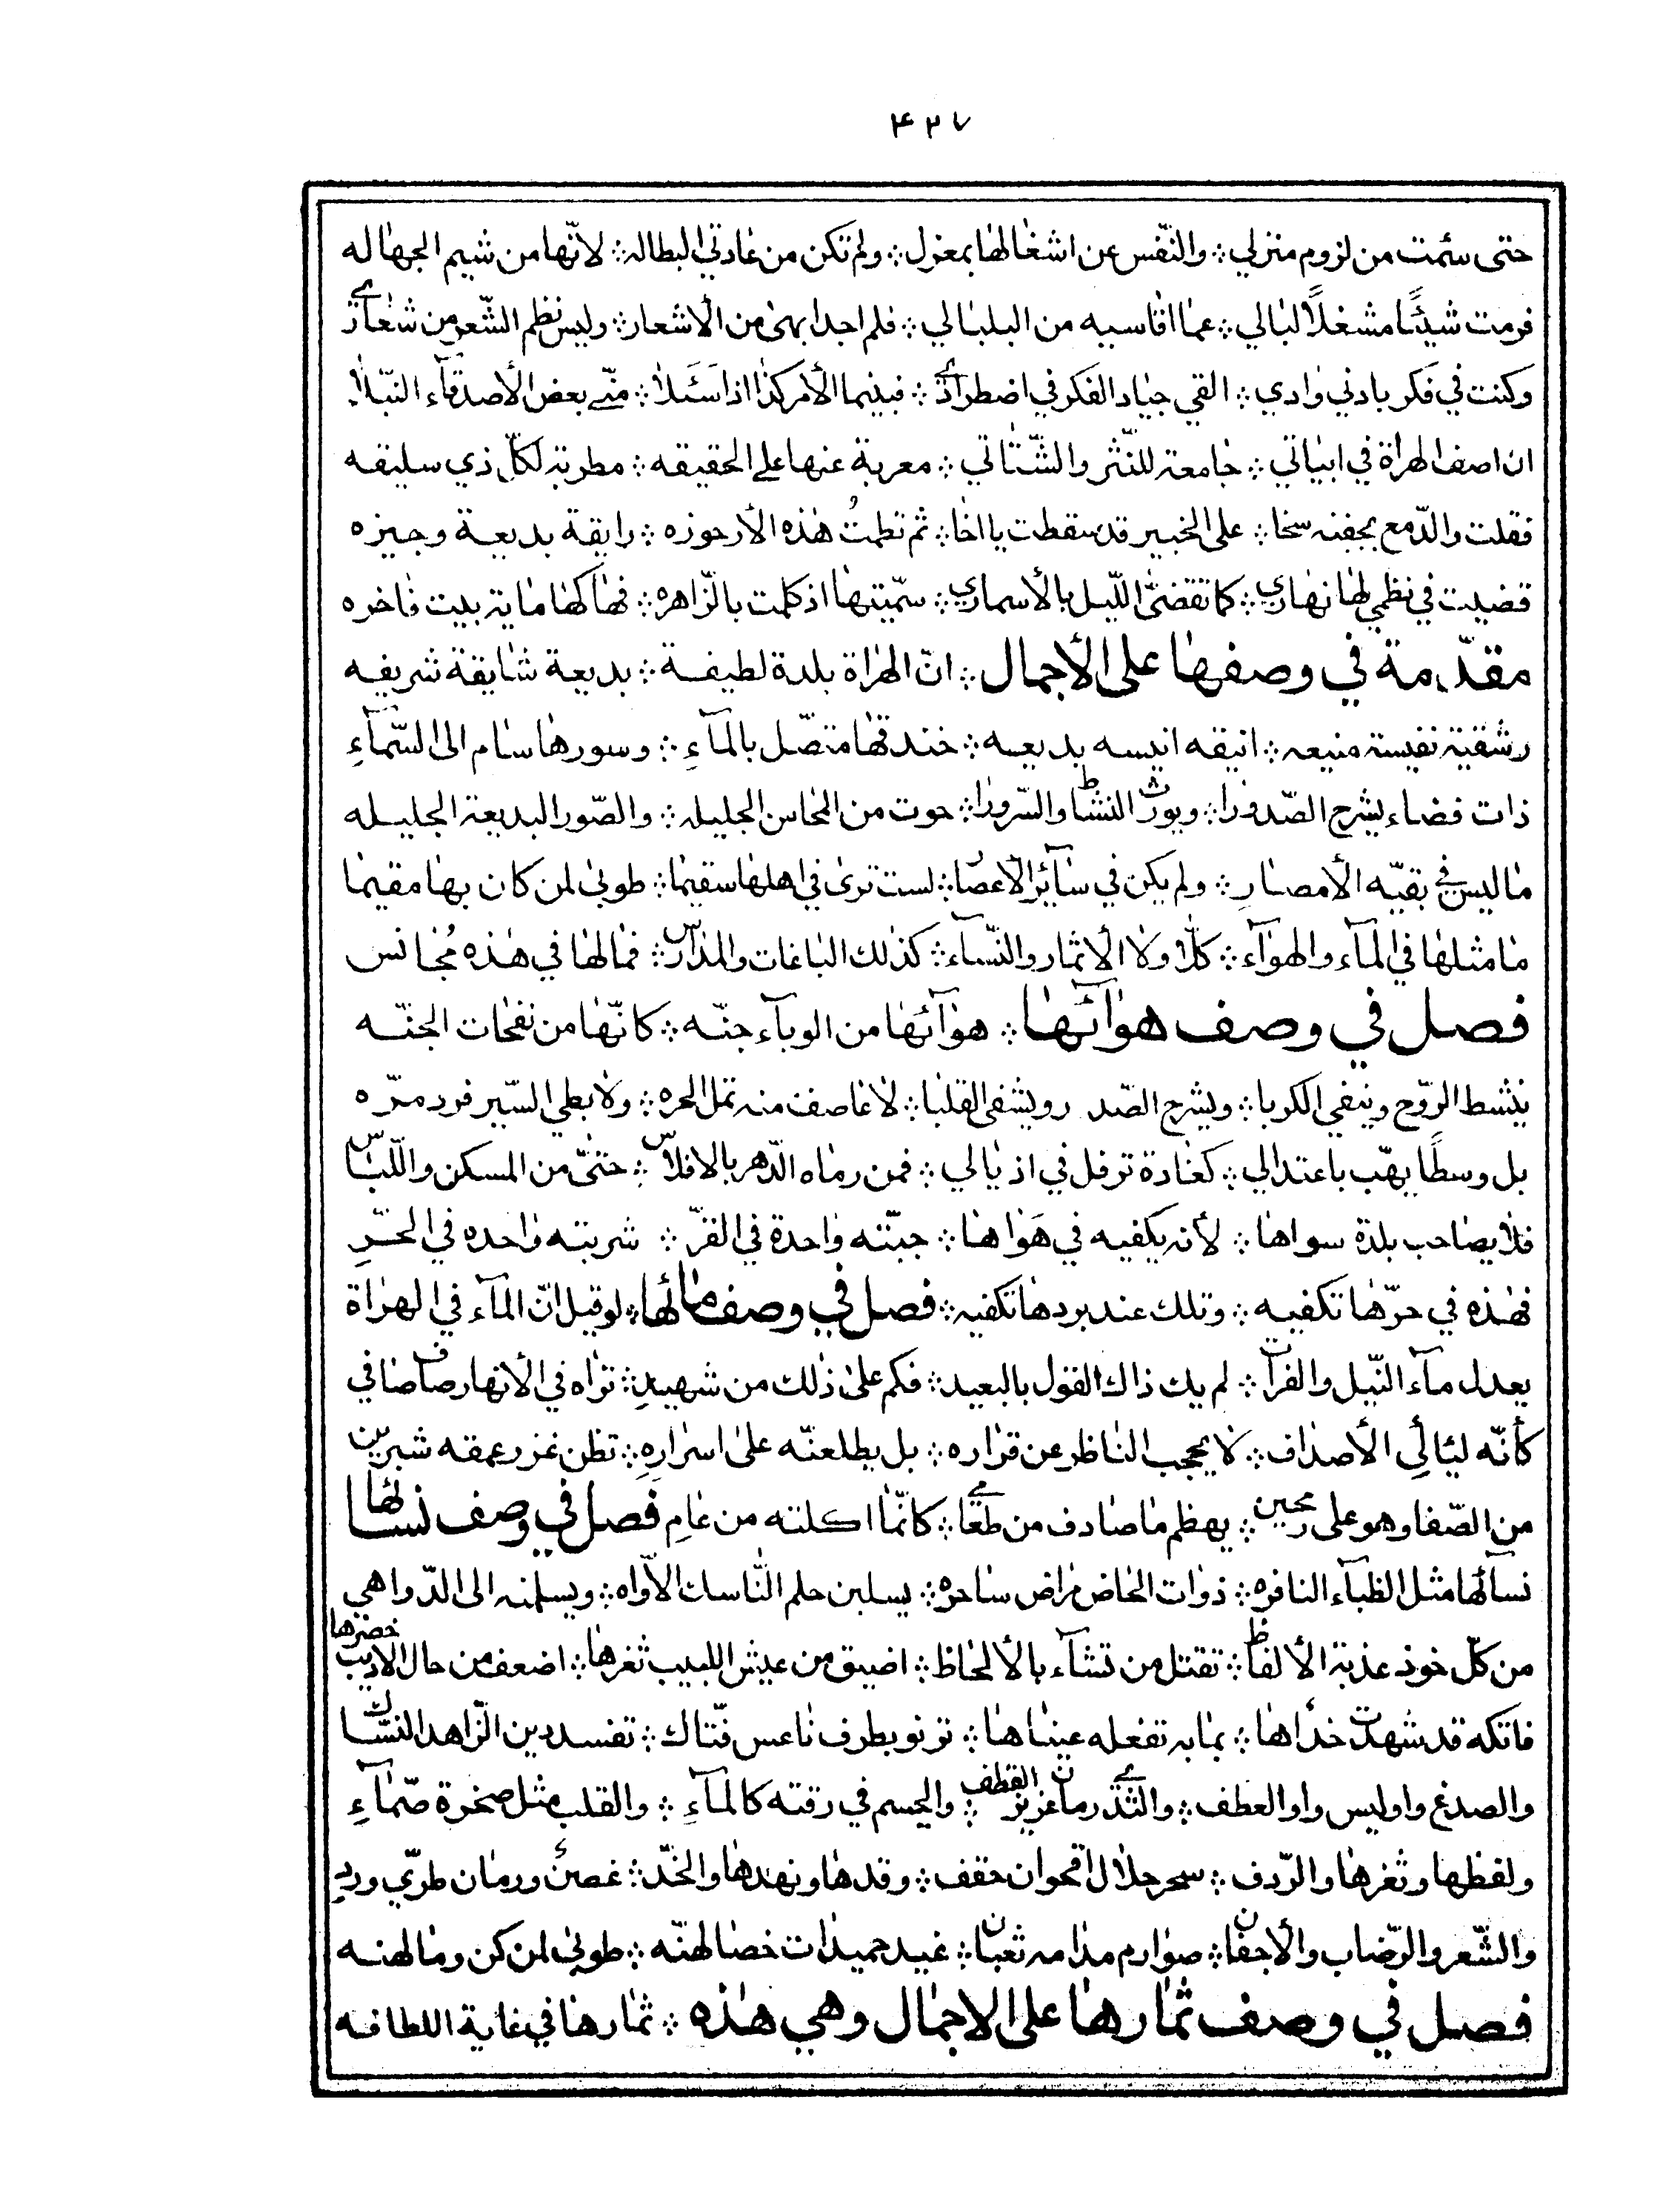 ٤٢٧
حتى سئمت من لزوم منزلي ∴ والنّفس عن اشغالها بمعزل ∴ ولم تكن من عادتي البطاله ∴ لانّها من شيم الجهاله
فرمت شيئًا مشغلًا لبالي ∴ عما اقاسيه من البلبالي ∴ فلم اجد ابهى من الأشعار ∴ وليس نظم الشّعر من شعاري
وكنت في فكر بادني وادي ∴ القي جياد الفكر في اضطرادي ∴ فبينما الأمر كذا اذ اسَئَلا ∴ منّي بعض الأصدقآء النّبلا
ان اصف الهراة في ابياتي ∴ جامعة للنّثر والشّتاتي ∴ معربة عنها على الحقيقه ∴ مطربة لكلّ ذي سليقه
فقلت والدّمع بجفنه سخا ∴ على الخبير قد سقطت يا اخا ∴ ثم نظمتُ هذه الأرجوزه ∴ رايقة بديعة وجيزه
قضيت في نظمي لها نهاري ∴ كما تقضىّ اللّيل بالأسماري ∴ سمّيتها اذ كملت بالزّاهره ∴ فهاكها ماية بيت فاخره
مقدّمة في وصفها على الأجمال ∴ انّ الهراة بلدة لطيفة ∴ بديعة شايقة شريفه
رشقية نفيسة منيعه ∴ انيقه انيسه بديعه ∴ خندقها متصّل بالمآءِ ∴ وسورها سام الى السّمآءِ
ذات فضاء يشرح الصّدورا ∴ ويورث النشاط والسّرورا ∴ حوت من المحاسن الجليله ∴ والصّور البديعة الجليله
ما ليس في بقيّه الأمصارِ ∴ ولم يكن في سآئر الأعصار ∴ لست ترى في اهلها سقيما ∴ طوبى لمن كان بها مقيما
ما مثلها في المآء والهوآء ∴ كلّا ولا الاثمار والنّسآء ∴ كذلك الباغات والمدارس ∴ فما لها في هذه مُجانس
فصل في وصف هوآئها ∴ هوآئها من الوبآء جنّه ∴ كانّها من نفحات الجنّه
ينشط الرّوح وينفي الكربا ∴ ويشرح الصّدر ويشفى القلبا ∴ لا عاصف منه تمل الحره ∴ ولا بطي السّير فرد مرّه
بل وسطًا يهّب باعتدالي ∴ كغادة ترفل في اذيالي ∴ فمن رماه الدّهر بالافلاس ∴ حتىّ من المسكن واللّباس
فلا يصاحب بلدة سواها ∴ لأنه يكفيه في هَواها ∴ جبّته واحدة في القرّ ∴ شربته واحده في الحَرِّ
فهذه في حرّها تكفيه ∴ وتلك عند بردها تكفيه ∴ فصل في وصف مائها ∴ لو قيل انّ المآء في الهراة
يعدل مآء النّيل والفرات ∴ لم يك ذاك القول بالبعيد ∴ فكم على ذلك من شهيدِ ∴ تراه في الأنهار صاف صافي
كأنّه ليالي الأصداف ∴ لا يحجب الناظر عن قراره ∴ بل يطلعنّه على اسرارِهِ ∴ تظن غزر عمقه شبرين
من الصّفا وهو على رمحين ∴ يهظم ما صادف من طعامي ∴ كانّما اكلته من عامِ فصل في وصف نسائها
نسآئها مثل الظبآء النافره ∴ ذوات الحاض مراض ساحره ∴ يسلبن حلم النّاسك الأوّاه ∴ ويسلمنه الى الدّواهي
من كلّ خود عذبة الألفاظ ∴ تقتل من تشآء بالألحاظ ∴ اضيق من عيش اللبيب ثغرها ∴ اضعف من حال الاديب خصرها
فاتكه قد شهدت خدّاها ∴ بما به تفعله عيناها ∴ ترنو بطرف ناعس فتّاك ∴ تفسد دين الزّاهد النسّاك
والصدغ واو ليس واو العطف ∴ والثّدي رمان عزيز القطف ∴ والجسم في رقته كالمآءِ ∴ والقلب مثل صخرة صمّآءِ
ولفظها وثغرها والرّدف ∴ سحر حلال اقحوان حقف ∴ وقدها ونهدها والخدّ ∴ غصن ورمان طريّ وردِ
والشّعر والرّضاب والأجفان ∴ صوارم مدامه ثعبان ∴ غيد حميدات خصالهنّه ∴ طوبى لمن كن وما لهنه
فصل في وصف ثمارها على الاجمال وهي هذه ∴ ثمارها في غاية اللطافه